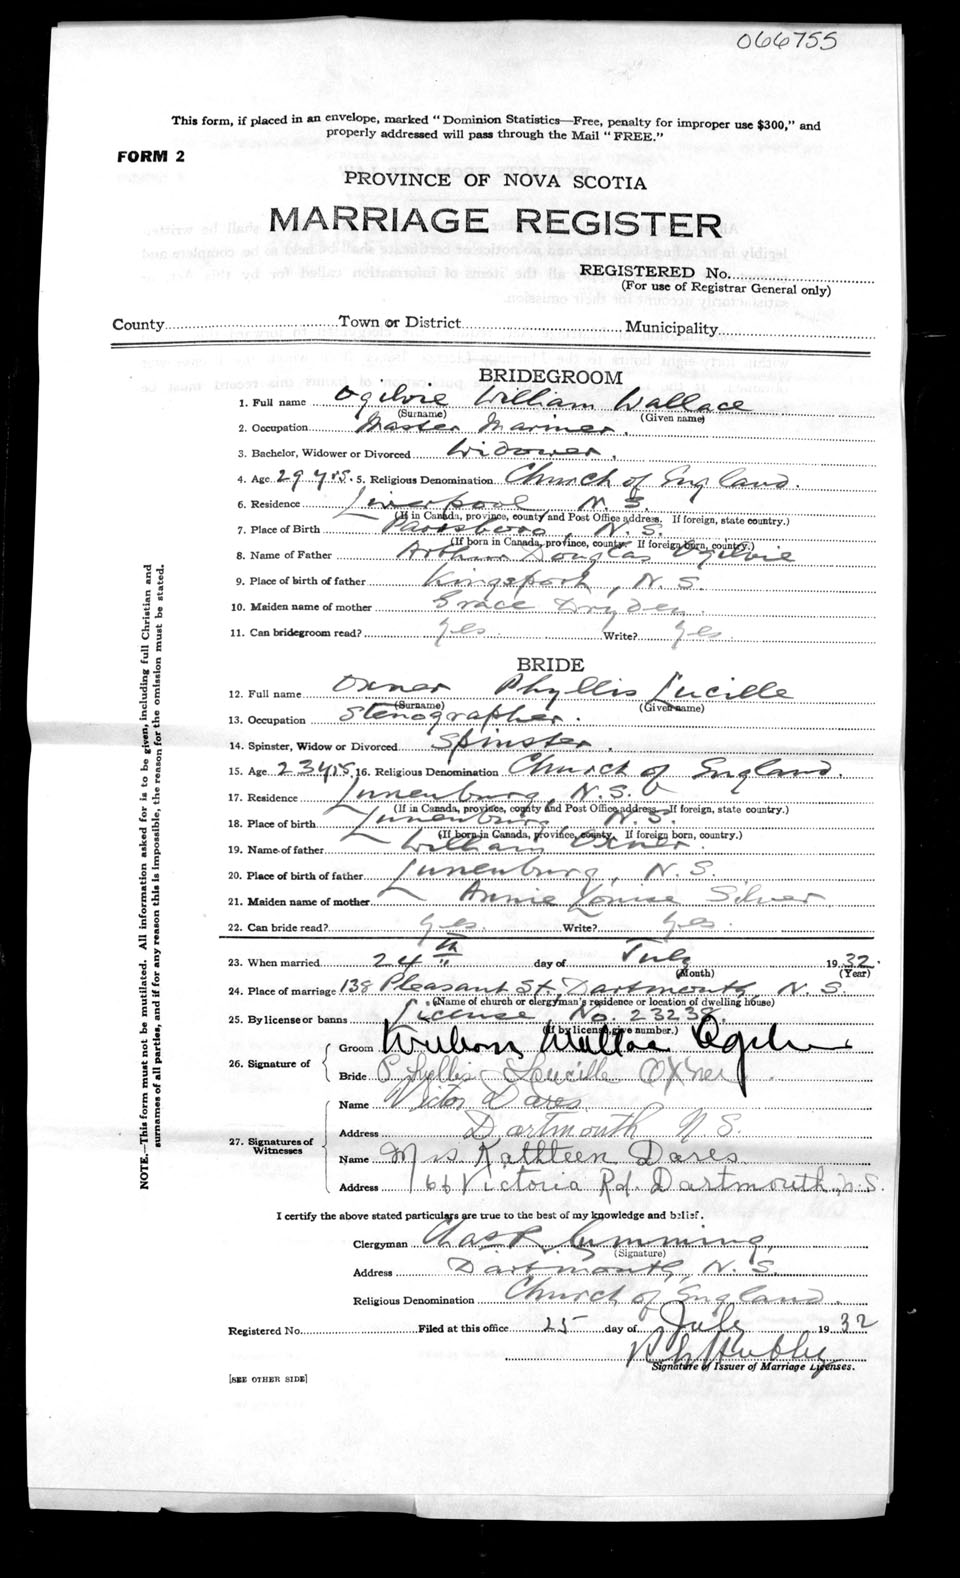 066755
This form, if placed in an envelope, marked "Dominion Statistics—Free, penalty for improper use $300," and
properly addressed will pass through the Mail "FREE."
FORM 2
PROVINCE OF NOVA SCOTIA
MARRIAGE REGISTER
REGISTERED No.
(For use of Registrar General only)
County Town or District Municipality
BRIDEGROOM
1. Full name Ogilvie William Wallace
(Surname) (Given name)
2. Occupation Master Mariner.
3. Bachelor, Widower or Divorced Widower.
4. Age 29 yrs. 5. Religious Denomination Church of England.
6. Residence Liverpool N.S.
(If in Canada, province, county and Post Office address. If foreign, state country.)
7. Place of Birth Parrsboro, N.S.
(If born in Canada, province, county. If foreign born, country.)
8. Name of Father Arthur Douglas Ogilvie
9. Place of birth of father Kingsport, N.S.
10. Maiden name of mother Grace Dryden.
11. Can bridegroom read? Yes. Write? Yes.
BRIDE
12. Full name Oxner Phyllis Lucille
(Surname) (Given name)
13. Occupation Stenographer.
14. Spinster, Widow or Divorced Spinster.
15. Age 23 yrs. 16. Religious Denomination Church of England.
17. Residence Lunenburg, N.S.
(If in Canada, province, county and Post Office address—If foreign, state country.)
18. Place of birth Lunenburg, N.S.
(If born in Canada, province, county. If foreign born, country.)
19. Name of father William Oxner.
20. Place of birth of father Lunenburg, N.S.
21. Maiden name of mother Annie Louise Silver
22. Can bride read? Yes. Write? Yes.
23. When married 24th day of July 1932.
(Month) (Year)
24. Place of marriage 138 Pleasant St. Dartmouth, N.S.
(Name of church or clergyman's residence or location of dwelling house)
25. By license or banns License, No. 23238.
(If by license, give number.)
26. Signature of
Groom William Wallace Ogilvie
Bride Phyllis Lucille Oxner.
27. Signatures of Witnesses
Name Victor Dares
Address Dartmouth N.S.
Name Mrs. Kathleen Dares
Address 166 Victoria Rd. Dartmouth, N.S.
I certify the above stated particulars are true to the best of my knowledge and belief.
Clergyman Chas R. Cumming,
(Signature)
Address Dartmouth, N.S.
Religious Denomination Church of England.
Registered No. Filed at this office 25 day of July 1932
Signature of Issuer of Marriage Licenses.
[SEE OTHER SIDE]
NOTE.—This form must not be mutilated. All information asked for is to be given, including full Christian and
surnames of all parties, and if for any reason this is impossible, the reason for the omission must be stated.